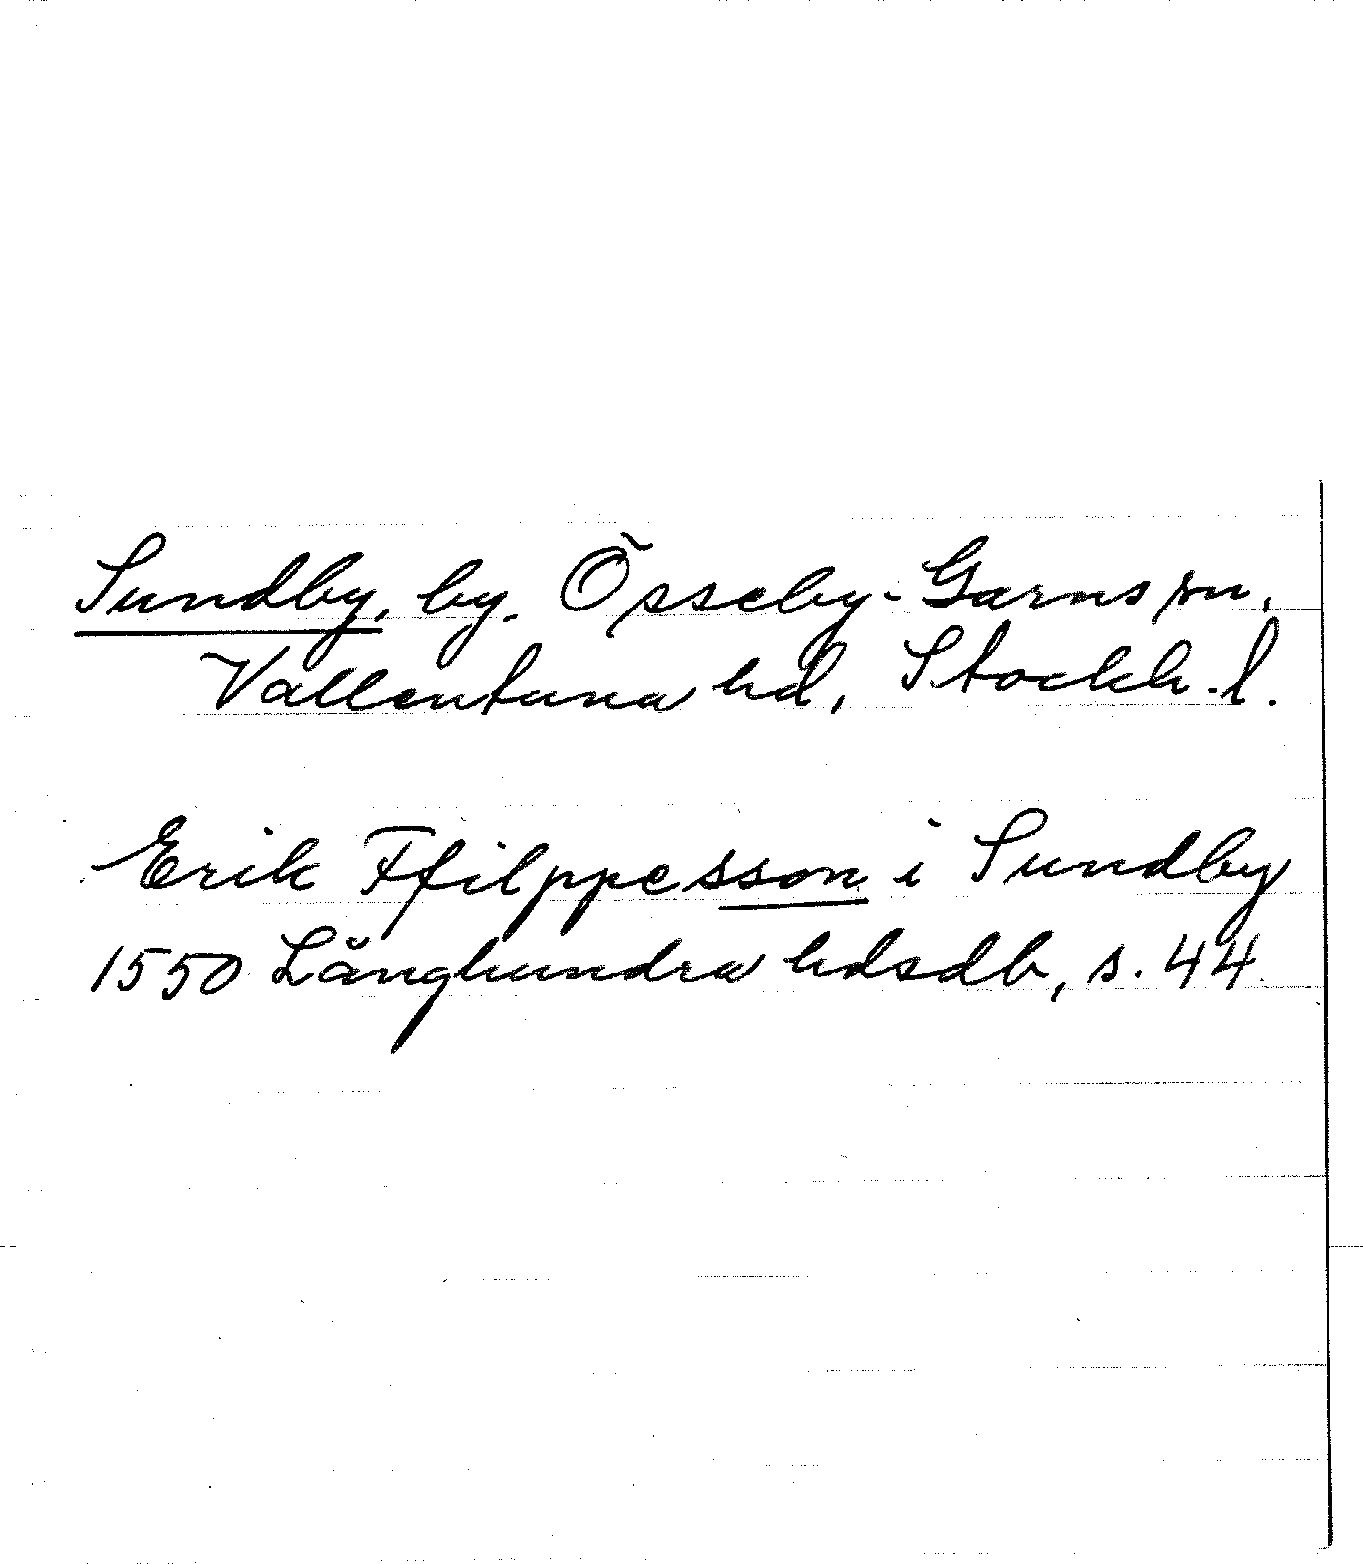 Sundby, by. Össeby-Garns sn.
Vallentuna hd, Stockh. l.
Erik Ffilppesson i Sundby
1550 Långhundra hdsdb, s. 44